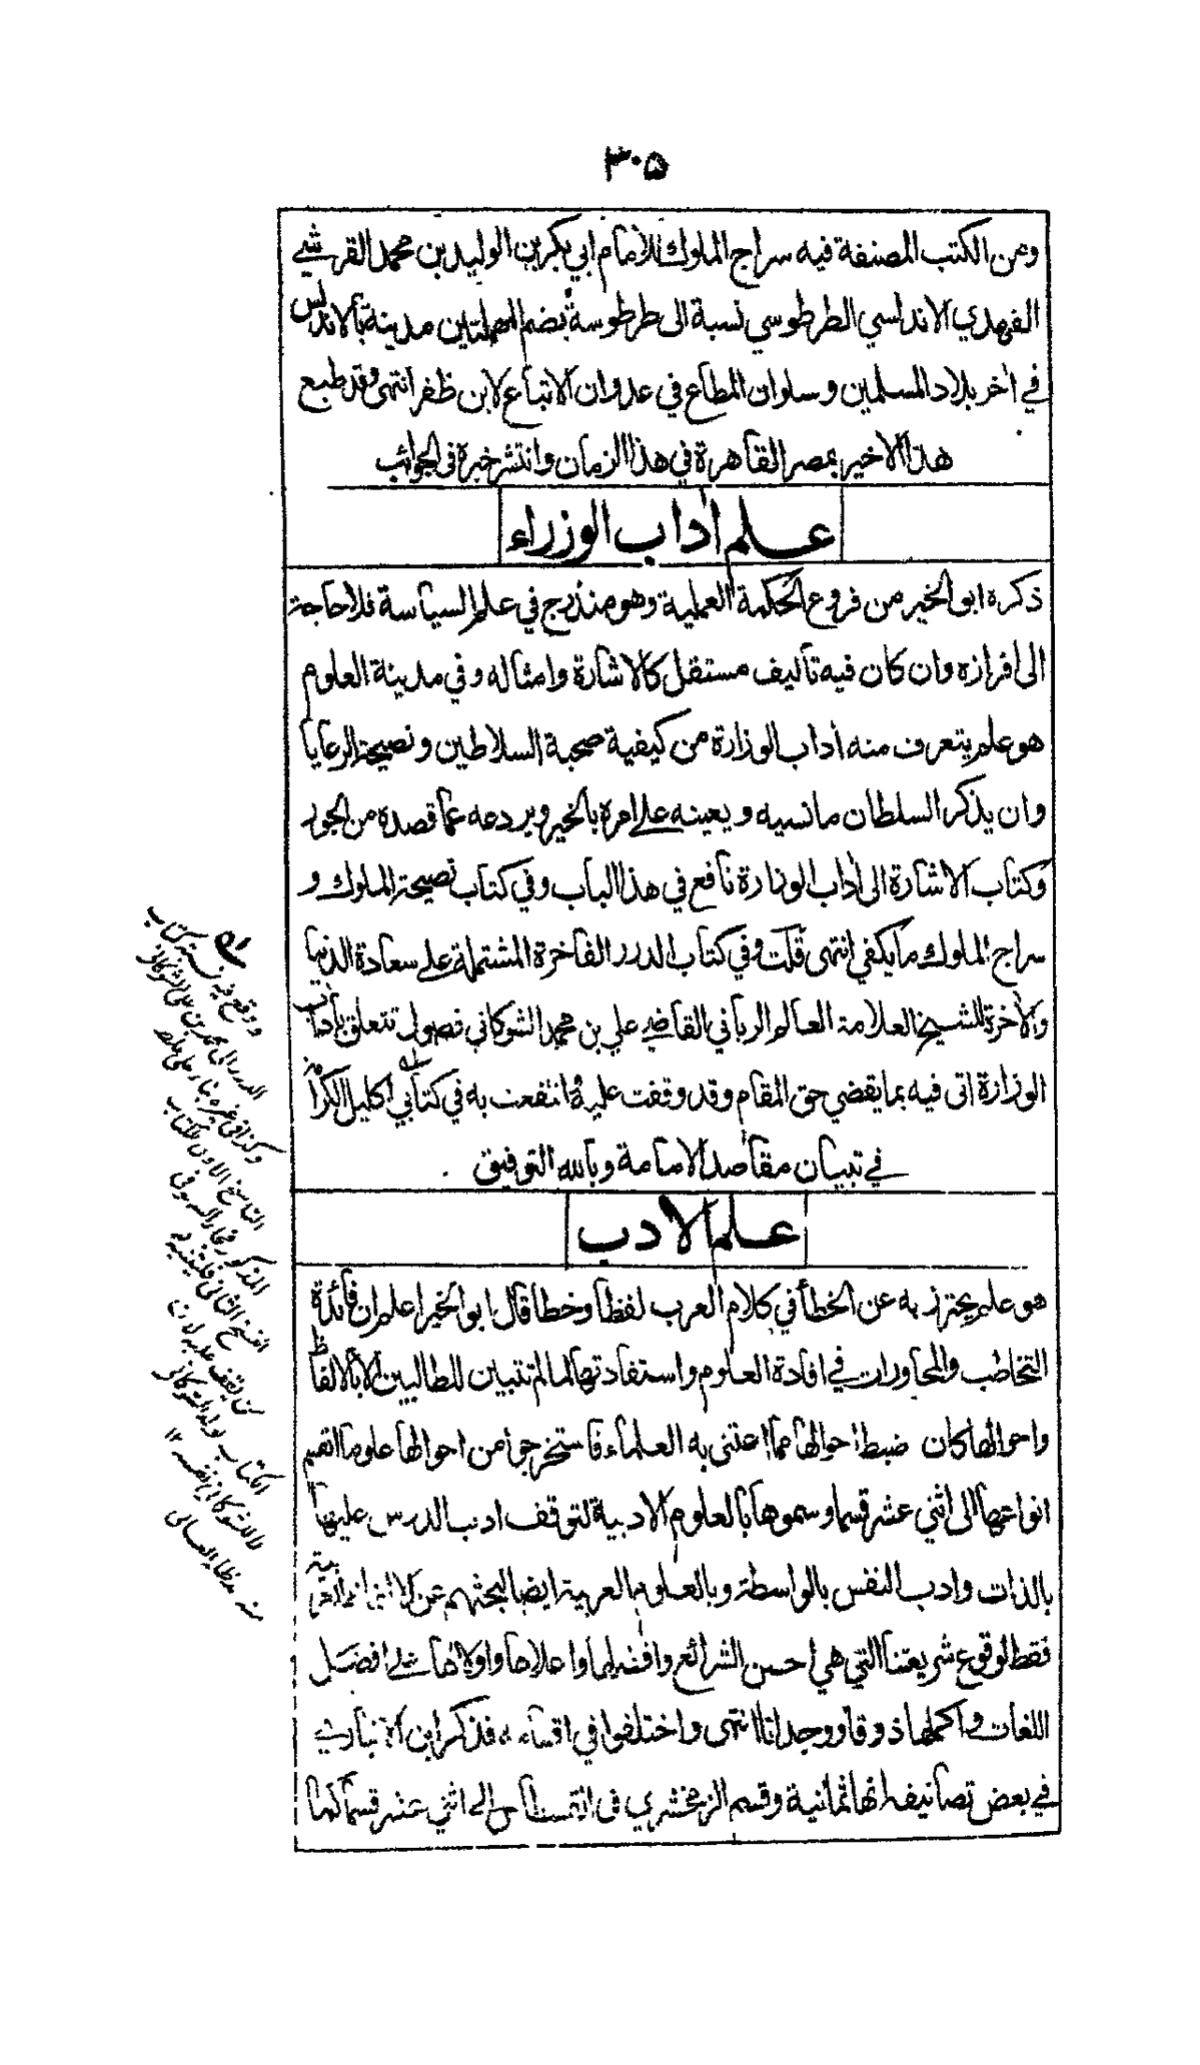 ٣٠٥
ومن الكتب المصنفة فيه سراج الملوك للامام ابي بكر بن الوليد بن محمد القرشي
الفهدي الاندلسي الطرطوسي نسبة الى طرطوسة بضم المهملتين مدينة بالاندلس
في اخر بلاد المسلمين وسلوان المطاع في عدوان الاتباع لابن ظفر انتهى وقد طبع
هذا الاخير بمصر القاهرة في هذا الزمان وانتشر خبره فى الجوائب
علم اداب الوزراء
ذكره ابو الخير من فروع الحكمة العملية وهو مندرج في علم السياسة فلا حاجة
الى افرازه وان كان فيه تاليف مستقل كالاشارة وامثاله وفي مدينة العلوم
هو علم يتعرف منه اداب الوزارة من كيفية صحبة السلاطين ونصيحة الرعايا
وان يذكر السلطان ما نسيه ويعينه على امره بالخير ويردعه عما قصده من الجور
وكتاب الاشارة الى اداب الوزارة نافع في هذا الباب وفي كتاب نصيحة الملوك و
سراج الملوك ما يكفي انتهى قلت وفي كتاب الدرر الفاخرة المشتملة على سعادة الدنيا
والاخرة للشيخ العلامة العالم الرباني القاضي علي بن محمد الشوكاني فصول تتعلق باداب
الوزارة اتى فيه بما يقضي حق المقام وقد وقفت عليه وانتفعت به في كتابي اكليل الكرامة
في تبيان مقاصد الامامة وبالله التوفيق
علم الادب
هو علم يحترز به عن الخطأ في كلام العرب لفظا وخطا قال ابو الخير اعلم ان فائدة
التخاطب والمحاورات في افادة العلوم واستفادتها لما لم تتبين للطالبين الا بالالفاظ
واحوالها كان ضبط احوالها مما اعتنى به العلماء فاستخرجوا من احوالها علوما انقسم
انواعها الى اثني عشر قسما وسموها بالعلوم الادبية لتوقف ادب الدرس عليها
بالذات وادب النفس بالواسطة وبالعلوم العربية ايضا لبحثهم عن الالفاظ العربية
فقط لوقوع شريعتنا التي هي احسن الشرائع وافضلها واعلاها واولاها على افضل
اللغات واكملها ذوقا ووجدانا انتهى واختلفوا في اقسامه فذكر ابن الانباري
في بعض تصانيفه انها ثمانية وقسم الزمخشري فى القسطاس الى اثني عشر قسما كما
ووقع في نسخة كتاب
الدرر الى محمد بن علي الشوكاني
الناسخ الاول للكتاب